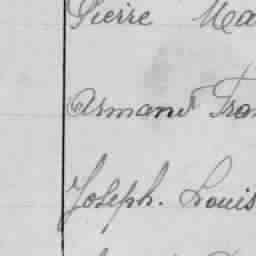 Pierre Ma
Armand Fran
Joseph. Louis